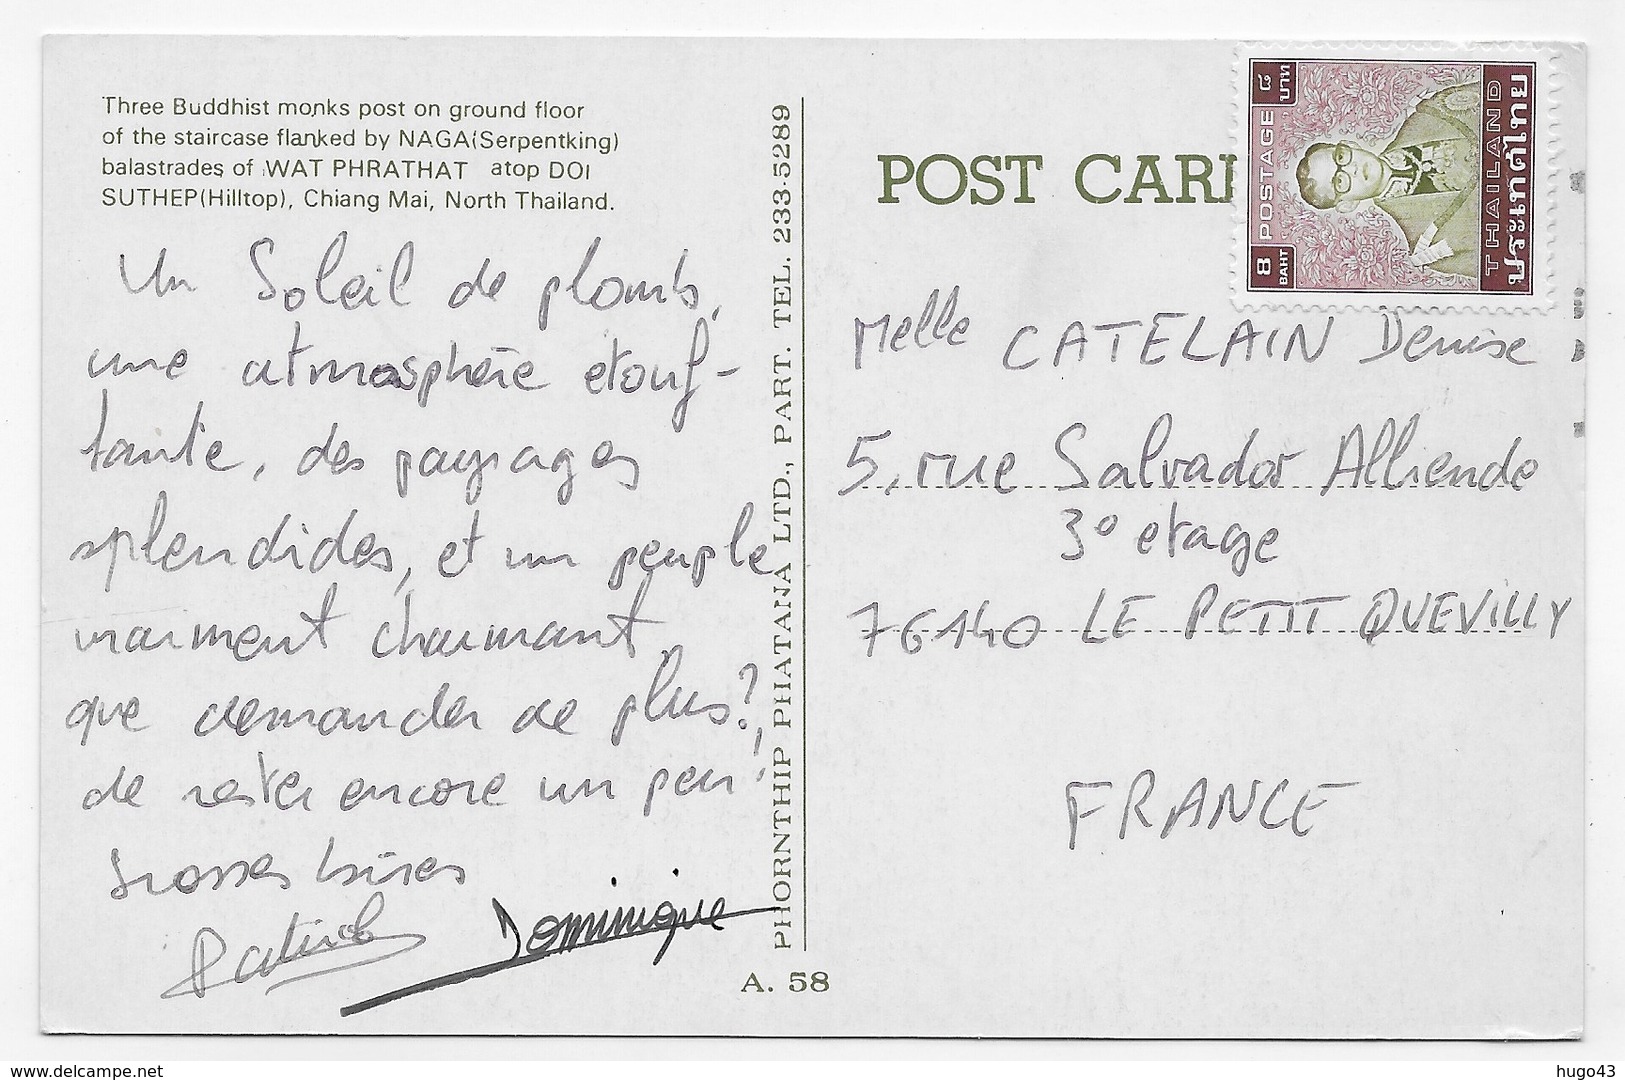 Three Buddhist monks post on ground floor
of the staircase flanked by NAGA(Serpentking)
balastrades of WAT PHRATHAT atop DOI
SUTHEP(Hilltop), Chiang Mai, North Thailand.
Un Soleil de plomb,
une atmosphère etouf-
fante, des paysages
splendides, et un peuple
vraiment charmant
que demander de plus?
de rester encore un peu!
Grosses bises
Patrick Dominique
PHORNTHIP PHATANA LTD., PART. TEL. 233-5289
A. 58
POST CAR
8 BAHT POSTAGE ๘ บาท
THAILAND
ประเทศไทย
Melle CATELAIN Denise
5, rue Salvador Alliende
3° etage
76140 LE PETIT QUEVILLY
FRANCE
www.delcampe.net
hugo43